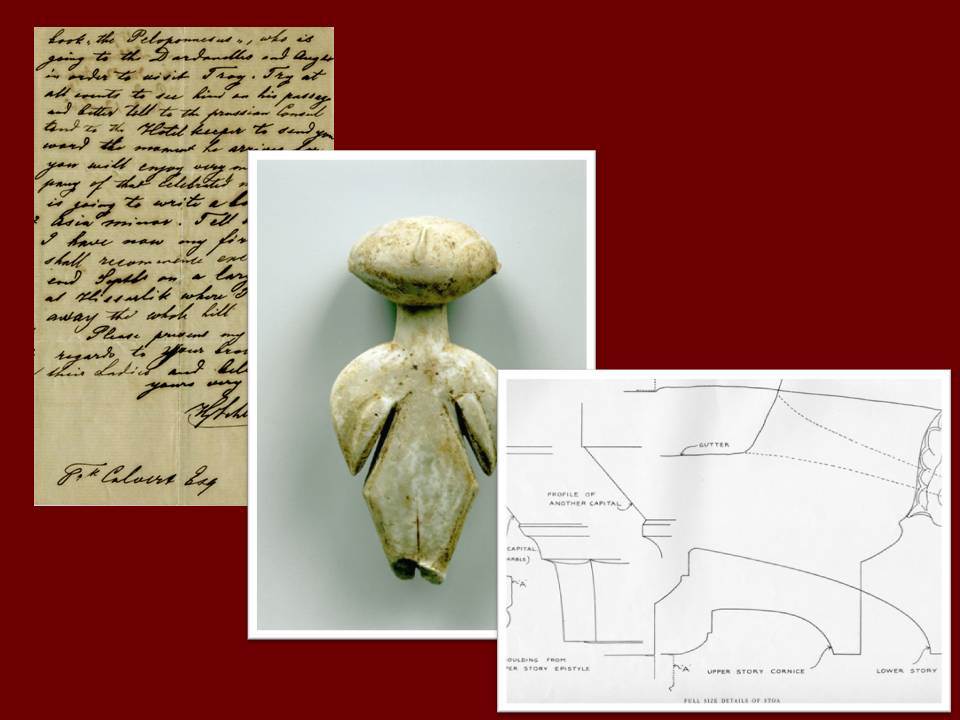 book, the Peloponnesus", who is
going to the Dardanelles and
in order to visit Troy. Try at
all events to see him on his passage
and better tell to the prussian Consul
to the Hotel keeper to send you
word the moment he
you will enjoy very
of that celebrated
is going to write a
Asia minor. Tell
I have now my
shall recommence
end Septbr on a
at Hissarlik where
away the whole hill
Please present my
regards to your
their Ladies and
yours very
Frk Calvert Esq
GUTTER
PROFILE OF
ANOTHER CAPITAL
CAPITAL
"A"
OULDING FROM
ER STORY EPISTYLE
"A"
UPPER STORY CORNICE
LOWER STORY
FULL SIZE DETAILS OF STOA